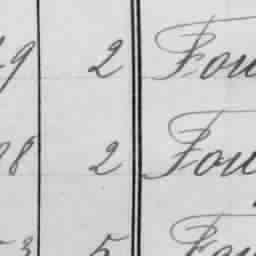 9 2 Fou
8 2 Fou
3 5 Fou